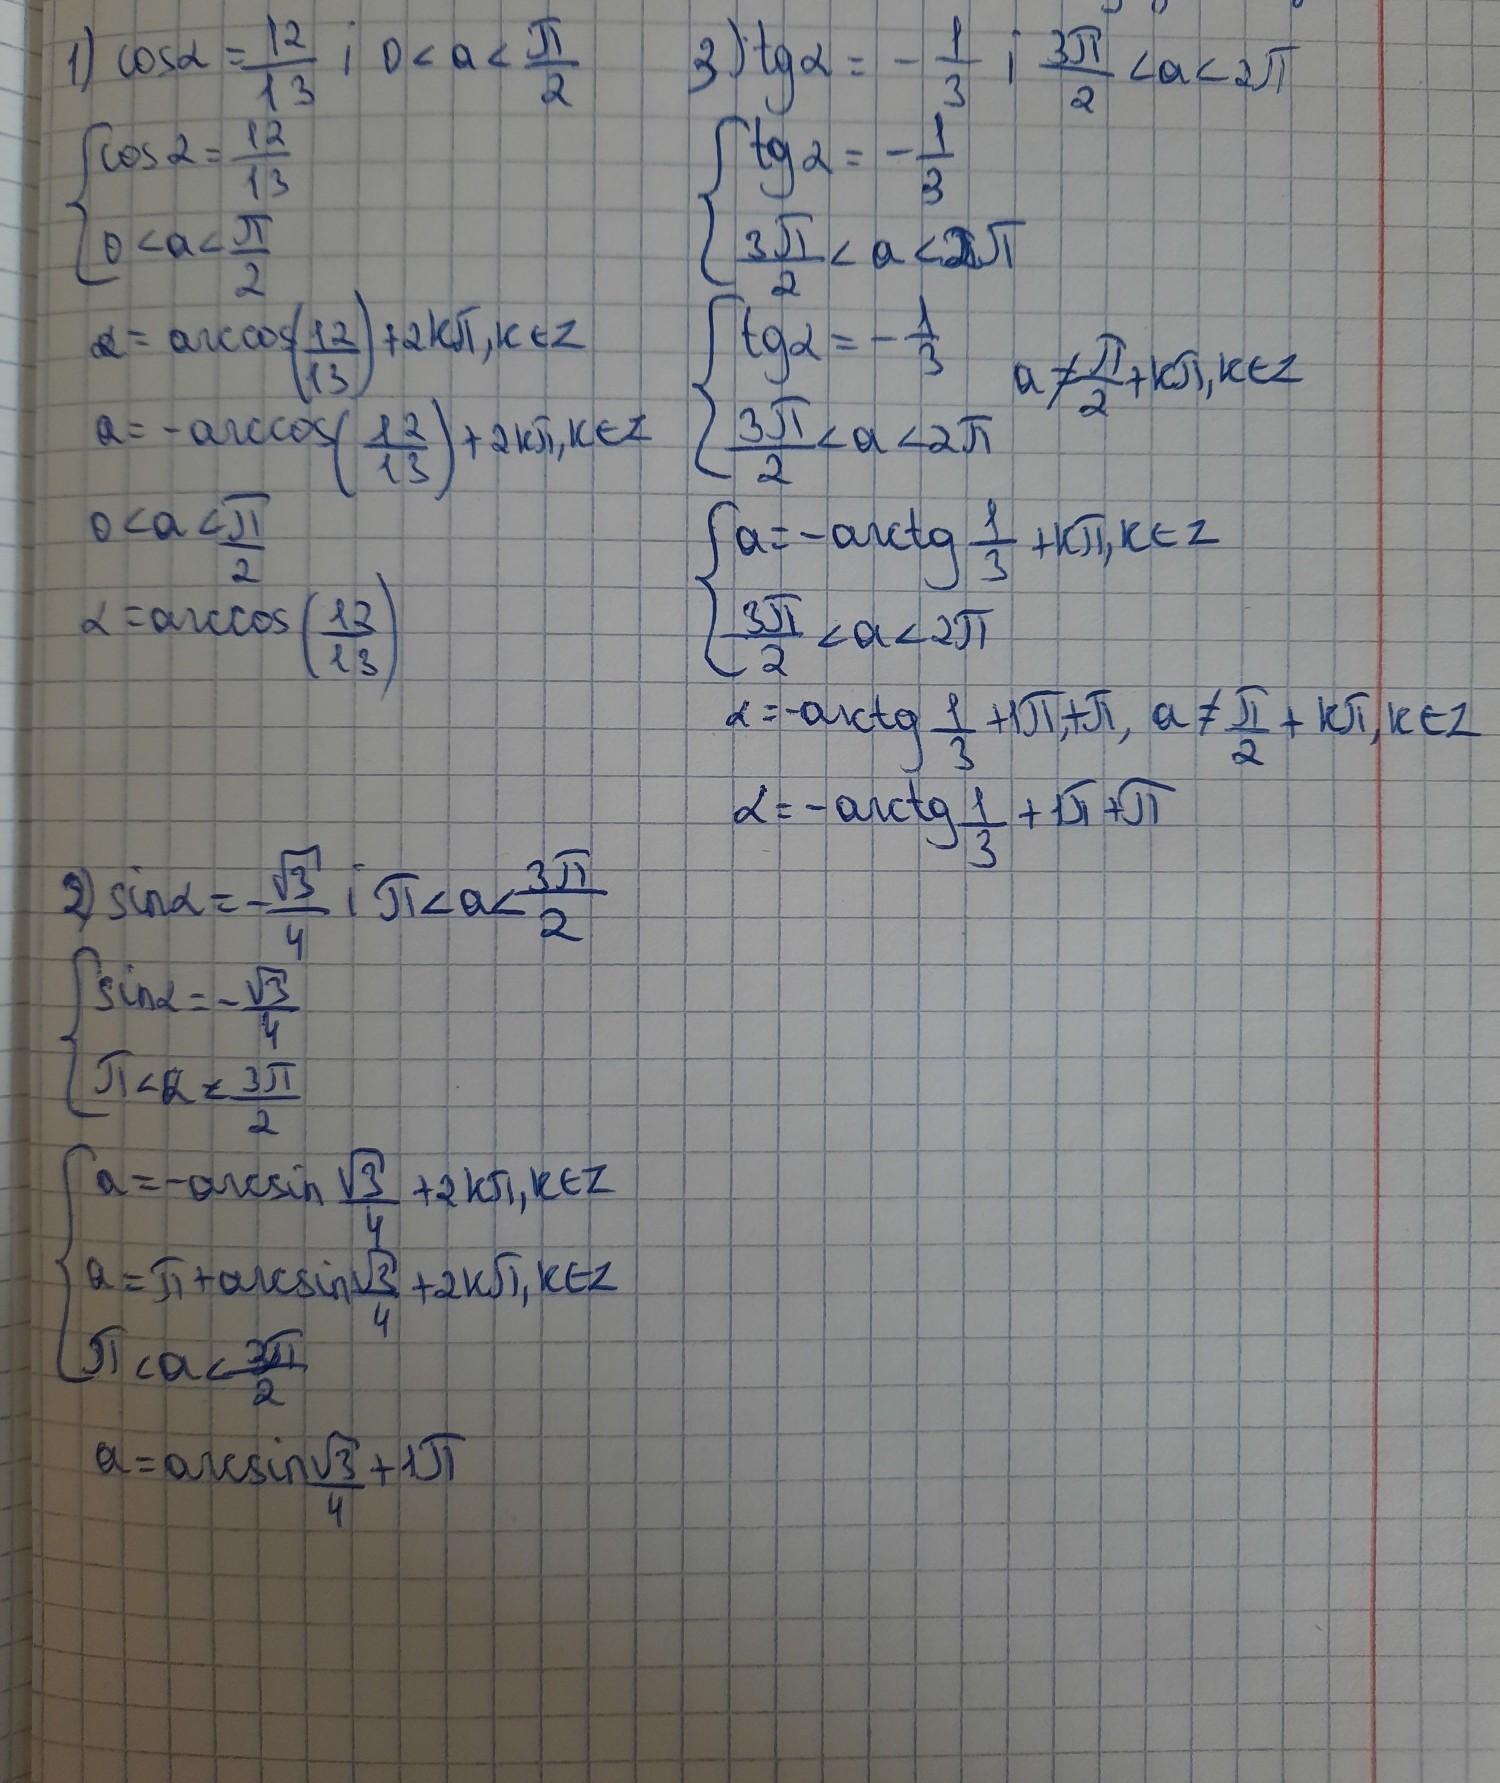 1) cosα = 12/13 i 0 < a < π/2
{ cosα = 12/13
0 < a < π/2
α = arccos(12/13) + 2kπ, k∈Z
a = -arccos(12/13) + 2kπ, k∈Z
0 < a < π/2
α = arccos(12/13)
2) sinα = -√3/4 i π < a < 3π/2
{ sinα = -√3/4
π < α < 3π/2
{ a = -arcsin √3/4 + 2kπ, k∈Z
a = π + arcsin √3/4 + 2kπ, k∈Z
π < a < 3π/2
a = arcsin √3/4 + 1π
3) tgα = -1/3 i 3π/2 < a < 2π
{ tgα = -1/3
3π/2 < a < 2π
{ tgα = -1/3 a ≠ π/2 + kπ, k∈Z
3π/2 < a < 2π
{ a = -arctg 1/3 + kπ, k∈Z
3π/2 < a < 2π
α = -arctg 1/3 + 1π, + π, a ≠ π/2 + kπ, k∈Z
α = -arctg 1/3 + 1π + π